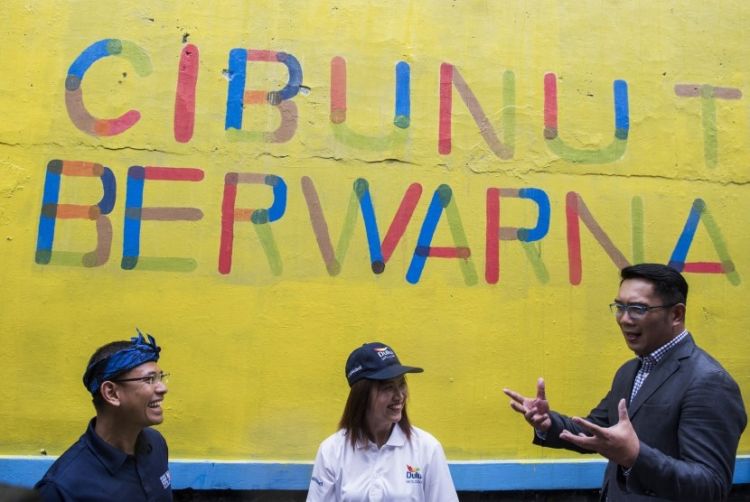 CIBUNUT
BERWARNA
Dulux
Dulux